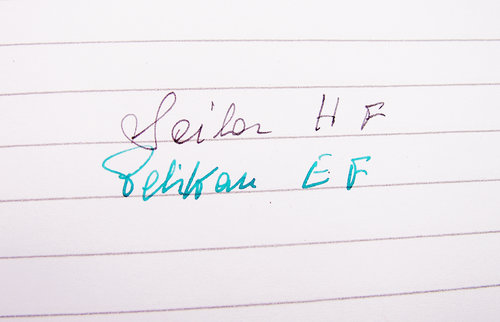 Sailor H F
Pelikan E F